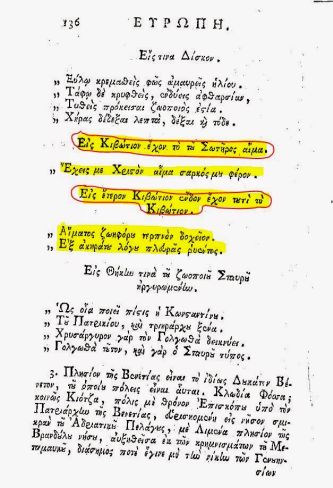 136 ΕΥΡΩΠΗ.
Εἴς τινα Δίσκον.
„ Ξύλῳ κρεμασθεὶς φῶς ἀμαυροῖς ἡλίου.
„ Τάφῳ δὲ κρυφθεὶς, ἐνδύεις ἀφθαρσίαν,
„ Τυθεὶς πρόκεισαι ζωοποιὸς ἑστία.
„ Χήρας δέδεξαι λεπτὰ, δέξαι καὶ τόδε.
Εἰς Κιβώτιον ἔχον τὸ τοῦ Σωτῆρος αἷμα.
„ Ἔχεις με Χριστὸν αἷμα σαρκός μου φέρον.
Εἰς ἕτερον Κιβώτιον ἔνδον ἔχον τουτὶ τὸ
Κιβώτιον.
„ Αἵματος ζωηφόρου τερπνὸν δοχεῖον.
„ Ἐξ ἀκηράτου λόγου πλευρᾶς ῥυέντος.
Εἰς Θήκην τινὰ τοῦ ζωοποιοῦ Σταυροῦ
ἠργυρωμένην.
„ Ὢς οἷα ποιεῖ πίστις ἡ Κωνσταντίνου.
„ Τοῦ Πατρικίου, καὶ τριηράρχου ξένα.
„ Χρυσάργυρον γὰρ τὸν Γολγωθᾶ δεικνύει.
„ Γολγωθᾶ τοῦτον, καὶ γὰρ ὁ Σταυροῦ τύπος.
3. Πλησίον τῆς Βενετίας εἶναι τὸ ἰδίως Δουκάτον Βέ-
νετον, τοῦ ὁποίου πόλεις εἶναι αὗται. Κλωδία Φόσσα;
κοινῶς Κιότζα, πόλις μὲ θρόνον Ἐπισκόπου ὑπὸ τὸν
Πατριάρχην τῆς Βενετίας, εὑρισκομένη εἰς νῆσον σμι-
κρὰν τοῦ Ἀδριατικοῦ Πελάγους, μὲ Λιμένα πλησίον τῆς
Βρανδόλου νήσου, αὐξηθεῖσα ἐκ τῶν κρημνισμάτων τοῦ Με-
ταμαύκου, διάσημος ποτὲ ἔγινε μὲ τὴν νίκην τῶν Γενουη-
σίων